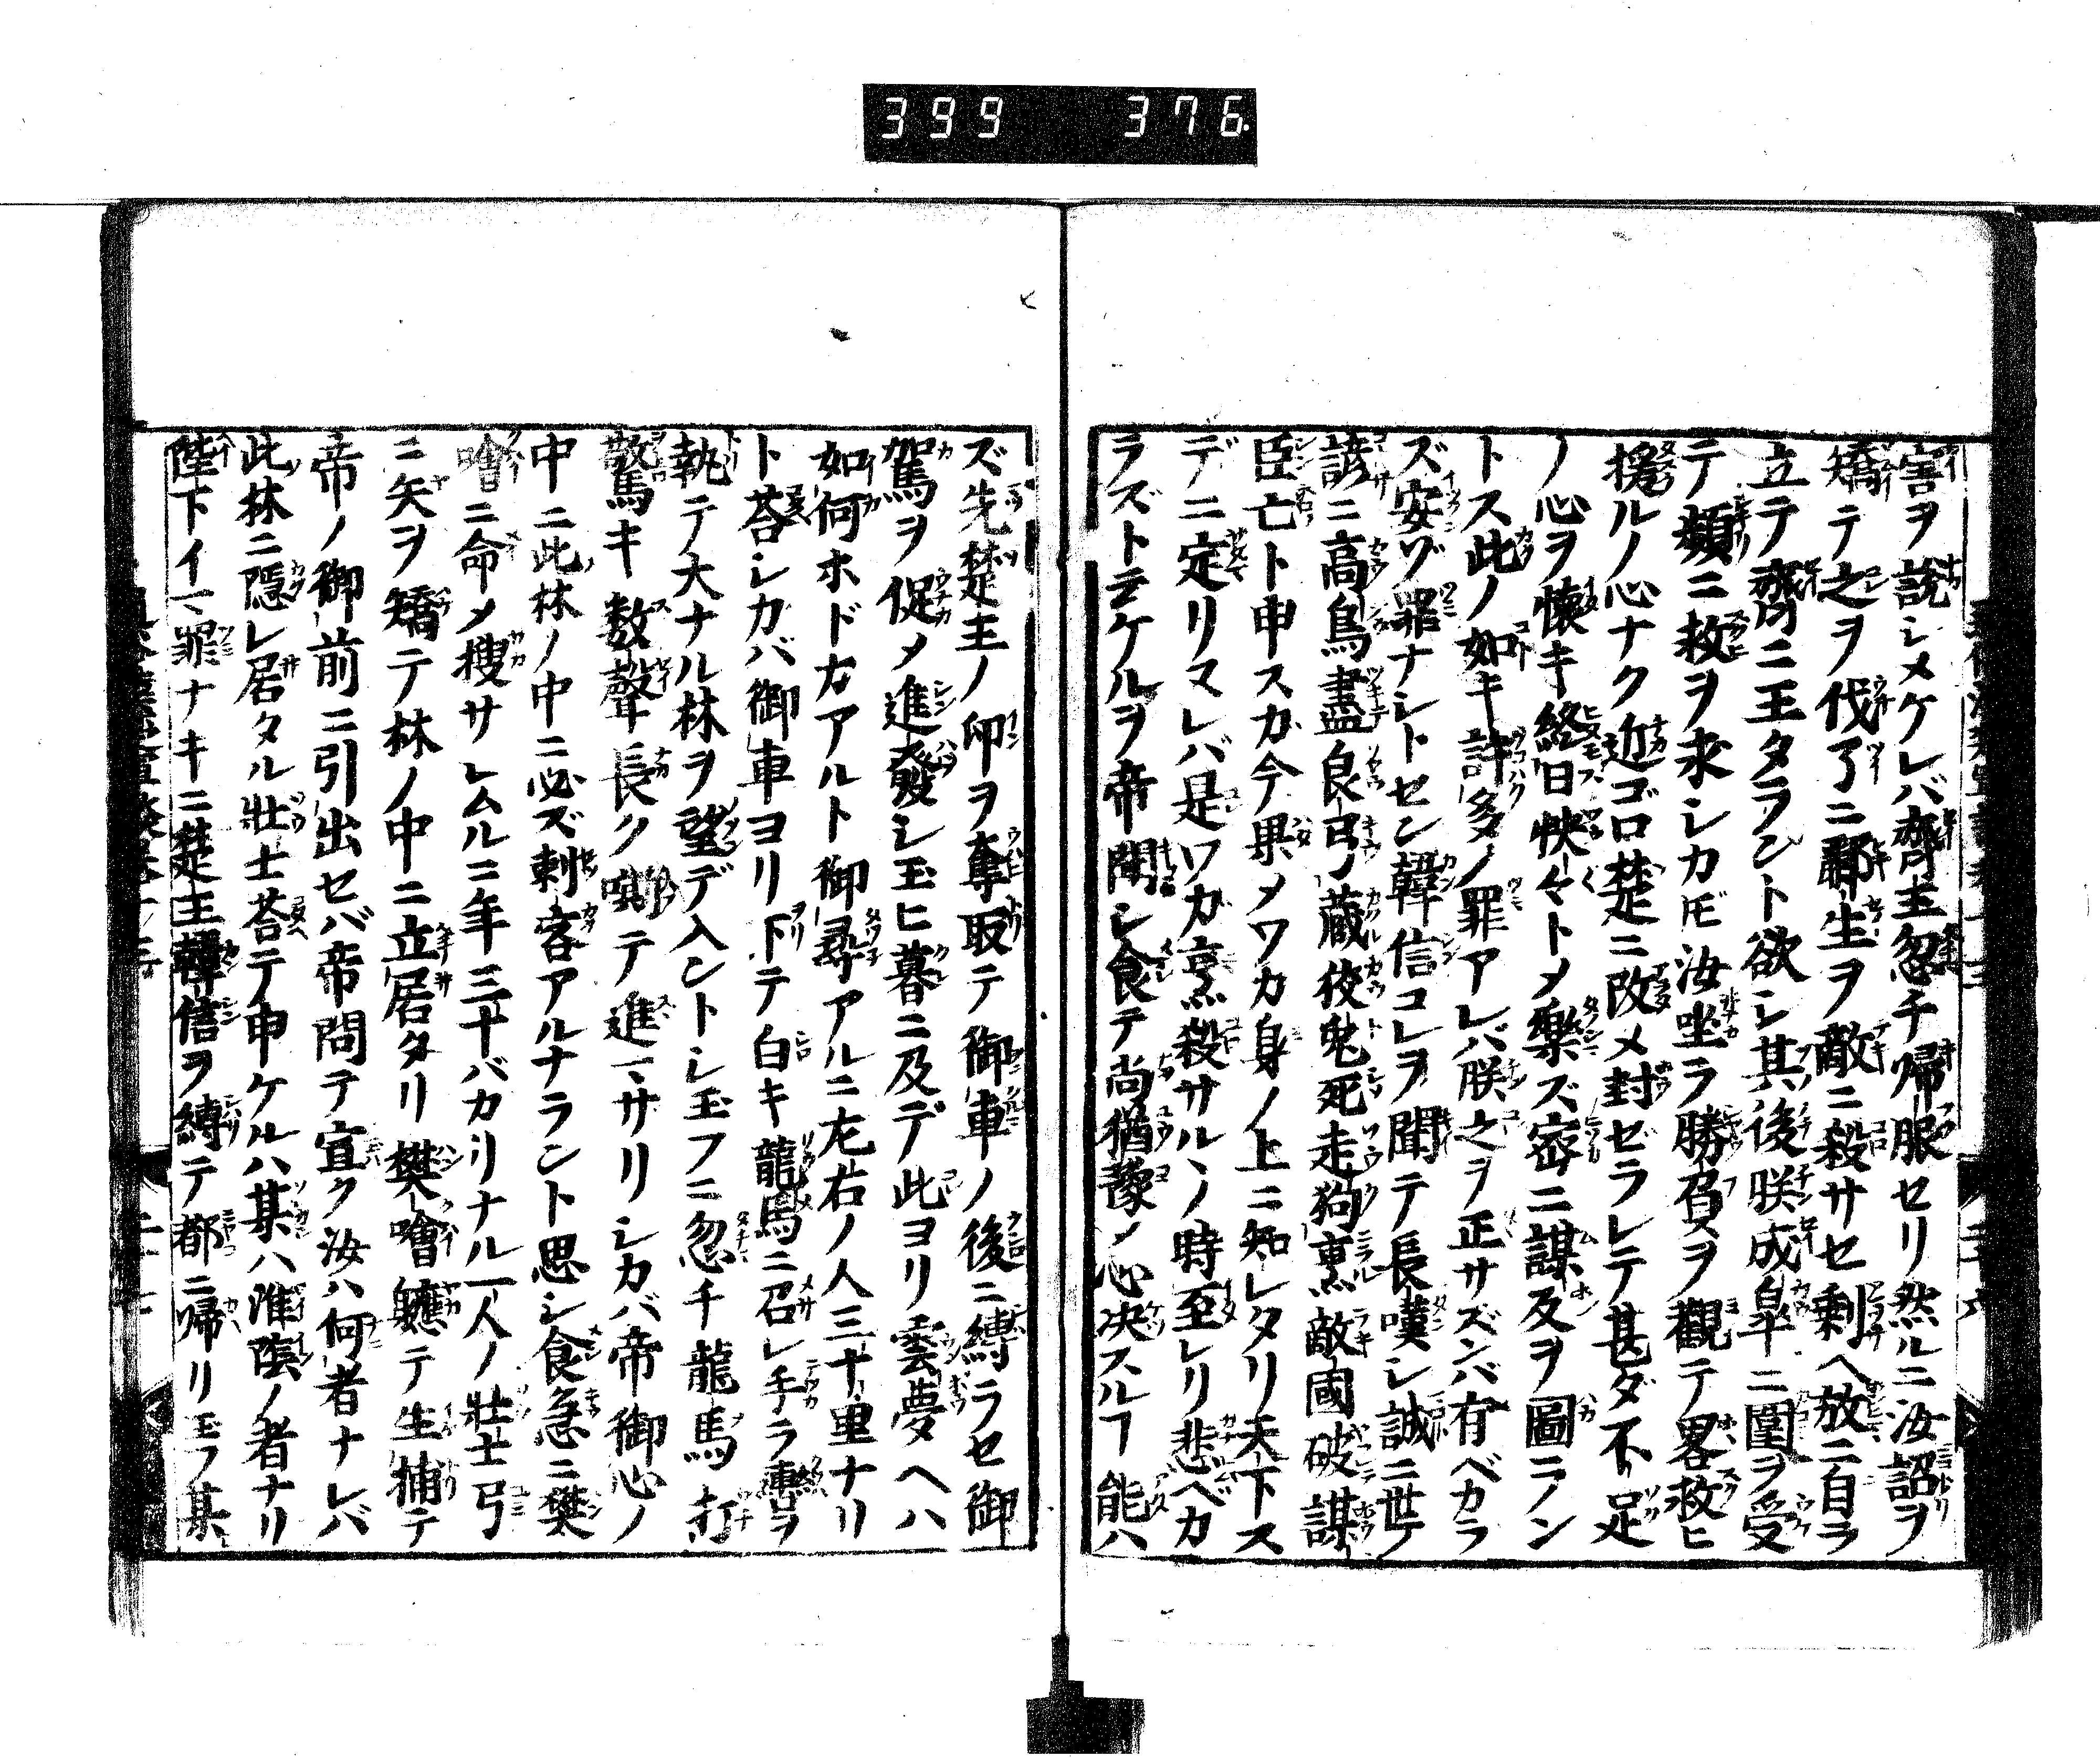 399 376
害ヲ説シメケレバ齊王忽チ帰服セリ然ルニ汝詔ヲ
矯テ之ヲ伐了ニ酈生ヲ敵ニ殺サセ剰ヘ放ニ自ラ
立テ齊ニ王タラント欲シ其後朕成皐ニ圍ヲ受
テ頻ニ救ヲ求シカ𪜈汝坐ラ勝負ヲ觀テ畧救ヒ
援ルノ心ナク近ゴロ楚ニ改メ封ゼラレテ甚ダ不足
ノ心ヲ懐キ終日怏々トメ樂ズ密ニ謀反ヲ圖ラン
トス此ノ如キ許多ノ罪アレバ朕之ヲ正サズンバ有ベカラ
ズ安ゾ罪ナシトセン韓信コレヲ聞テ長嘆シ誠ニ世ノ
諺ニ高鳥盡良弓蔵狡兔死走狗烹敵國破謀
臣亡ト申スカ今果メワカ身ノ上ニ知レタリ天下ス
デニ定リマレバ是ワカ烹殺サルヽノ時至レリ悲ベカ
ラズト云ケルヲ帝聞シ食テ尚猶豫ノ心决スルヿ能ハ
ズ先楚王ノ印ヲ奪取テ御車ノ後ニ縛ラセ御
駕ヲ促メ進發シ玉ヒ暮ニ及デ此ヨリ雲夢ヘハ
如何ホドカアルト御尋アルニ左右ノ人三十里ナリ
ト荅シカバ御車ヨリ下テ白キ龍馬ニ召レ手ラ轡ヲ
執テ大ナル林ヲ望デ入ントシ玉フニ忽チ龍馬打
驚キ数聲長ク嘶テ進マサリシカバ帝御心ノ
中ニ此林ノ中ニ必ズ刺客アルナラント思シ食急ニ樊
噲ニ命メ搜サレムルニ年三十バカリナル一人ノ壮士弓
ニ矢ヲ矯テ林ノ中ニ立居タリ樊噲軈テ生捕テ
帝ノ御前ニ引出セバ帝問テ宣ク汝ハ何者ナレバ
此林ニ隠レ居タル壮士荅テ申ケルハ某ハ淮陰ノ者ナリ
陛下イマ罪ナキニ楚王韓信ヲ縛テ都ニ帰リ玉フ某